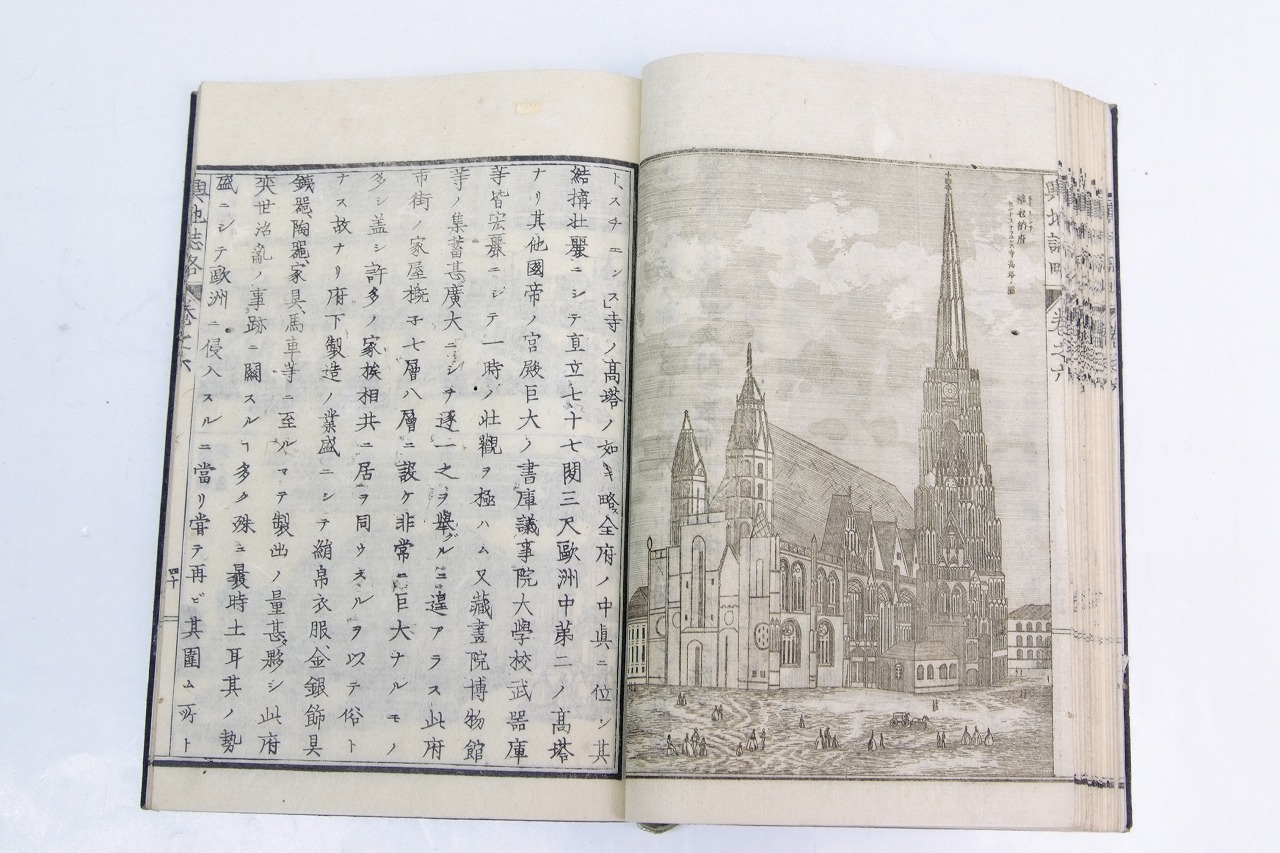 輿地誌略 巻之六
維也納府
ト、スチーンス」寺ノ高塔ノ如キ略全府ノ中眞ニ位シ其
結搆壮麗ニシテ直立七十七間三尺歐洲中第二ノ高塔
ナリ其他國帝ノ宮殿巨大ノ書庫議事院大學校武器庫
等皆宏麗ニシテ一時ノ壮觀ヲ極ハム又藏畫院博物館
等ノ集蓄甚廣大ニシテ逐一之ヲ擧グルニ遑アラス此府
市街ノ家屋概子七層八層ニ設ケ非常ニ巨大ナルモノ
多シ盖シ許多ノ家族相共ニ居ヲ同ウスルヲ以テ俗ト
ナス故ナリ府下製造ノ業盛ニシテ絹帛衣服、金銀飾具
鐵器、陶器、家具、馬車等ニ至ルマテ製出ノ量甚夥シ此府
奕世治亂ノ事跡ニ關スルヿ多ク殊ニ曩時土耳其ノ勢
盛ニシテ歐洲ニ侵入スルニ當リ嘗テ再ビ其圍ム所ト
輿地誌略 巻之六 四十